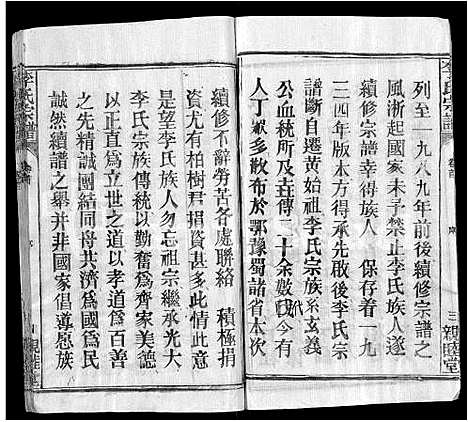 李氏宗譜
列至一九八九年前後續修宗譜之
風漸起國家未予禁止李氏族人遂
續修宗譜幸得族人 保存着一九
三四年版本方得承先啟後李氏宗
譜斷自遷黄始祖李氏宗族系玄義
公血統所及去古傳二十余數代
人丁 多散布於鄂豫蜀諸省本次
三
親睦堂
續修不辭勞苦各處聯絡 積極捐
資尤有柏樹君捐資甚多
是望李氏族人勿忘祖宗繼承光大
李氏宗族傳統以勤奮爲齊家美德
以正直爲立世之道以孝道爲百善
之先精誠團結同將共濟爲國爲民
誠然續譜之舉并非國家倡導愿族
李氏宗譜